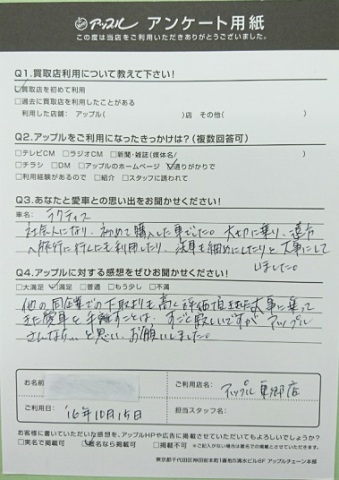 アップル アンケート用紙
この度は当店をご利用いただきありがとうございました。
Q1.買取店利用について教えて下さい!
□買取店を初めて利用
□過去に買取店を利用したことがある
利用した店舗: アップル( )店 その他( )
Q2.アップルをご利用になったきっかけは?(複数回答可)
□テレビCM □ラジオCM □新聞・雑誌(媒体名 )
□チラシ □DM □アップルのホームページ □通りがかりで
□利用経験があるので □紹介 □スタッフに誘われて
Q3.あなたと愛車との思い出をお聞かせください!
車名: ラクティス
社会人になり、初めて購入した車でした。大切に乗り、遠方
へ旅行に行くのも利用したり、洗車も細めにしたりと大事にして
いました。
Q4.アップルに対する感想をぜひお聞かせください!
□大満足 □満足 □普通 □もう少し □不満
他の同企業での下取よりも高く評価頂きました。大事に乗って
きた愛車を手離すことは、すごく寂しいですが アップル
さんなら… と思い、お願いしました。
お名前
ご利用店名: アップル 東郷店
ご利用日: '16年10月15日
担当スタッフ名:
お客様に書いていただいた感想を、アップルHPや広告に掲載させていただいてもよろしいでしょうか?
□実名で掲載可 □匿名なら掲載可 □掲載不可
東京都千代田区神田岩本町1番地5清水ビル6F アップルチェーン本部